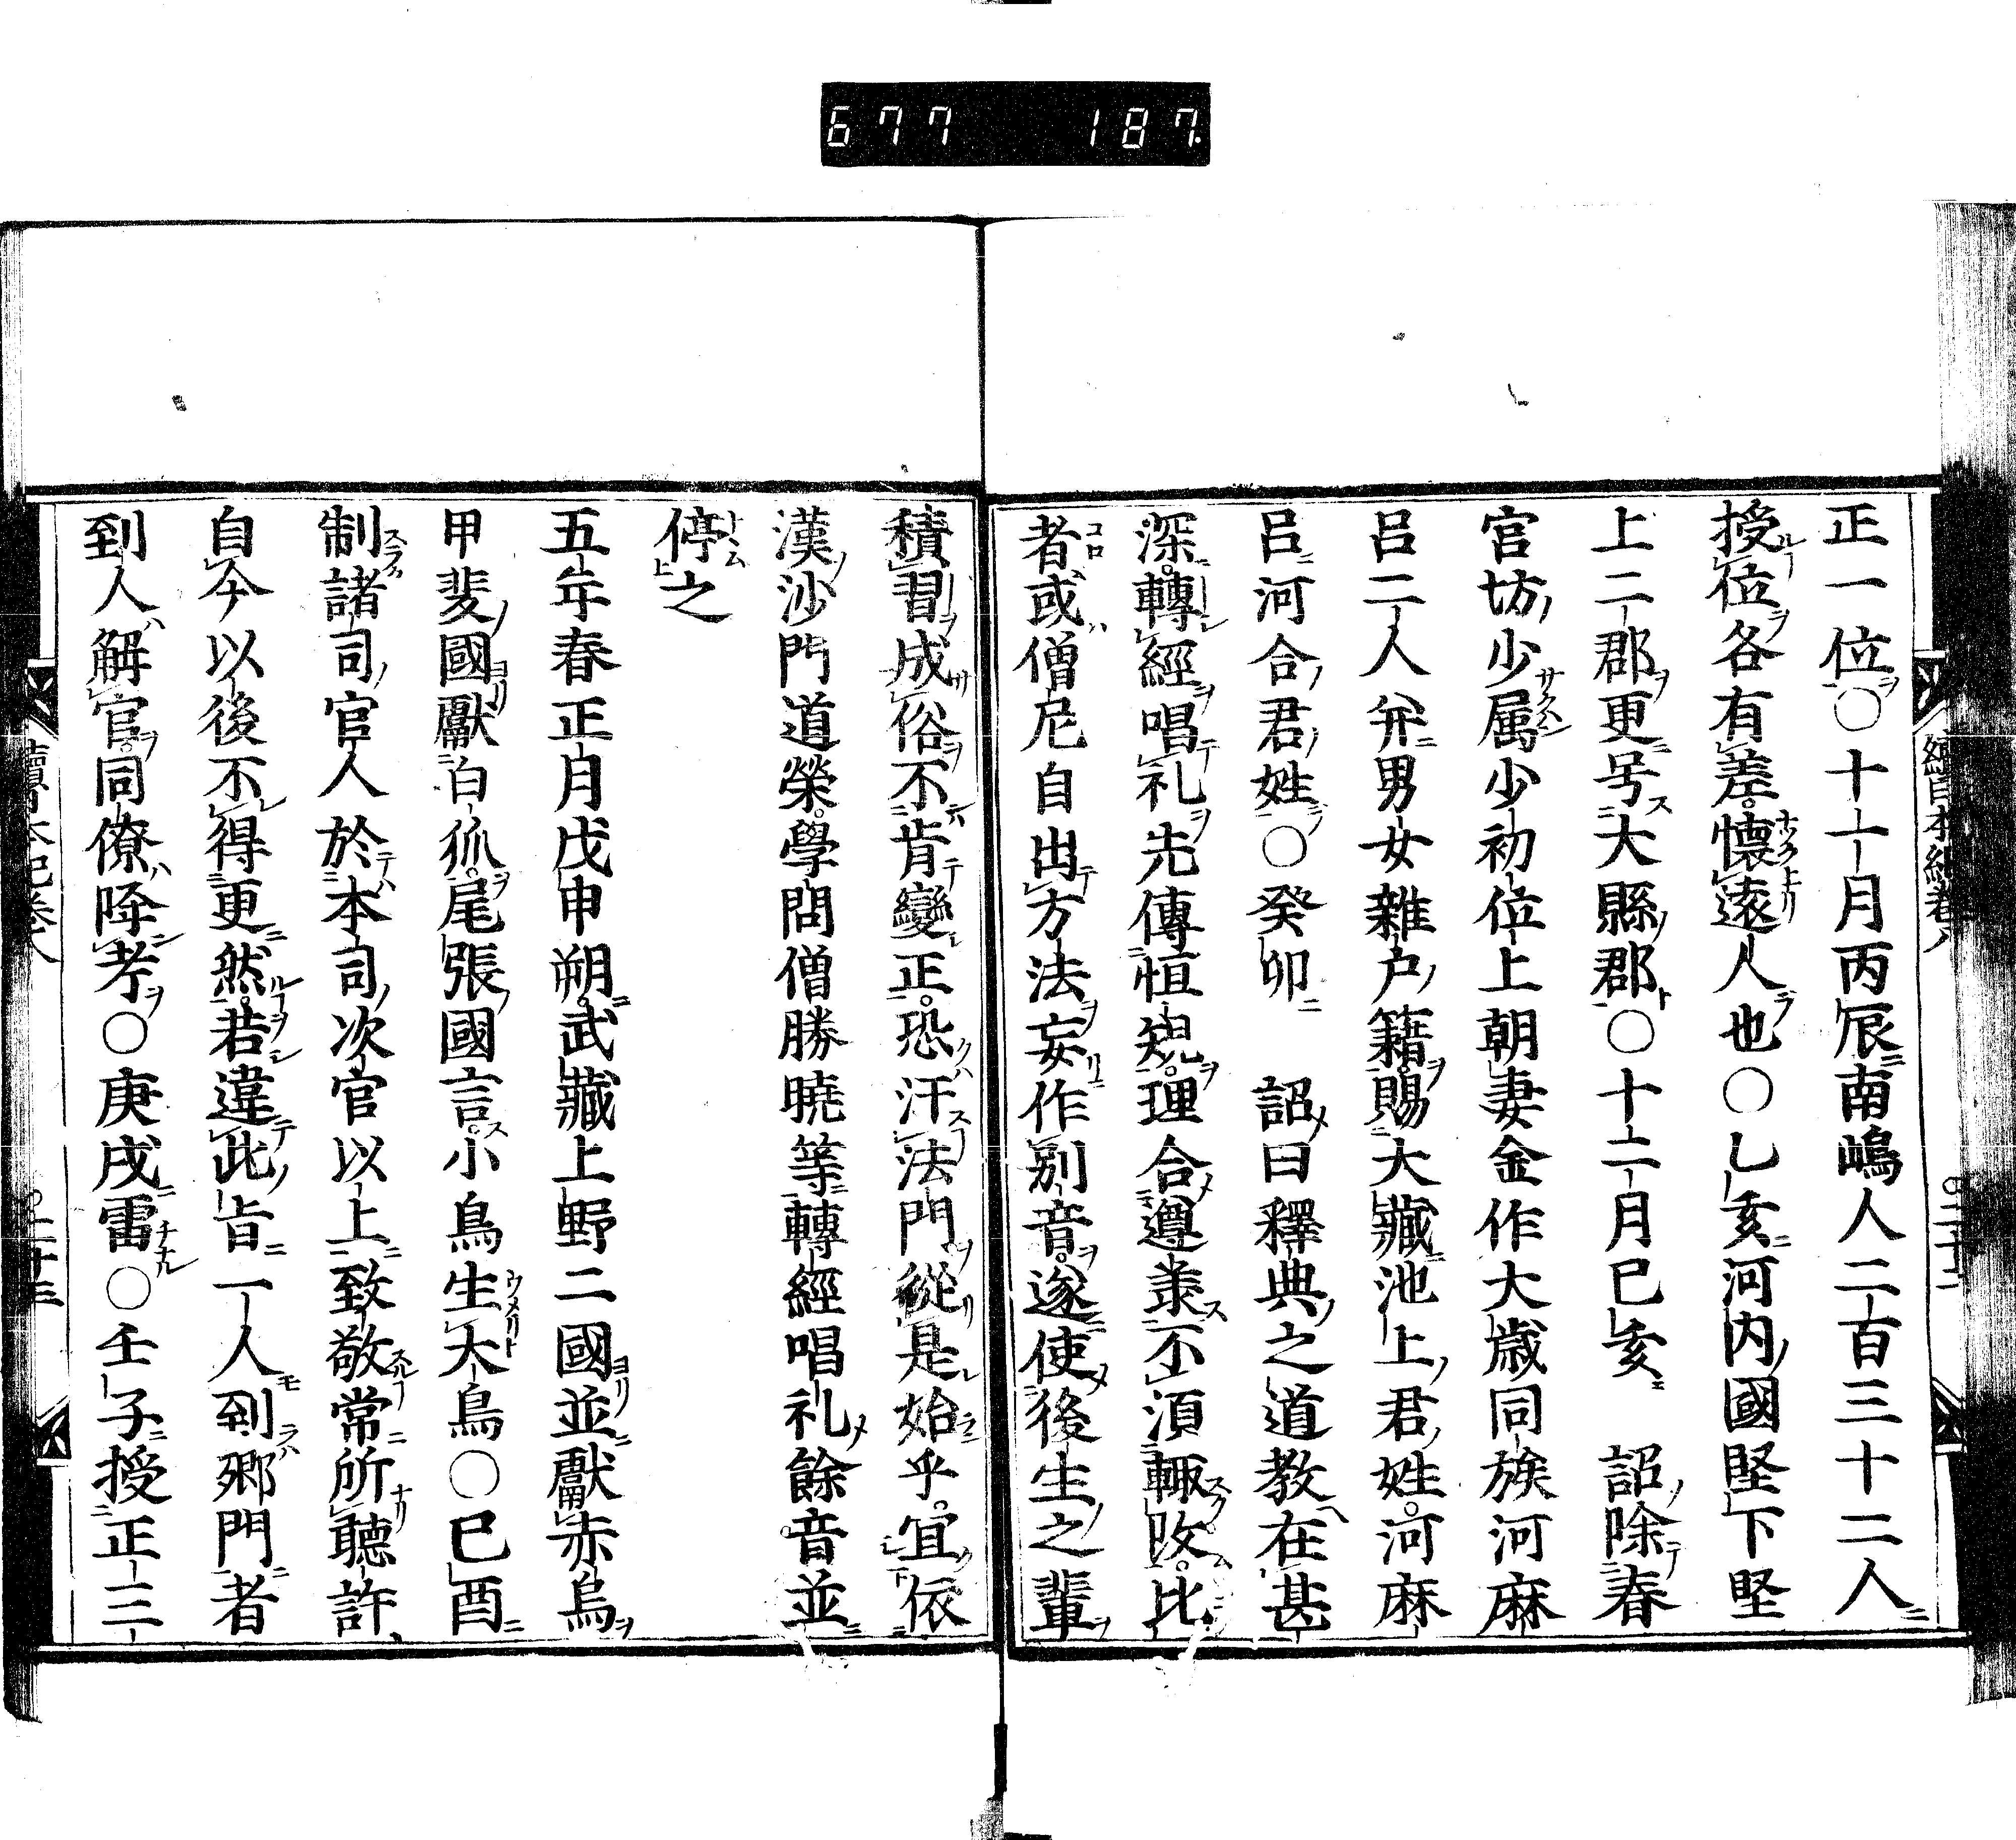 677 187
正一位〇十一月丙辰南嶋人二百三十二人
授位各有差懷遠人也〇乙亥河内國堅下堅
上二郡更号大縣郡〇十二月己亥 詔除春
官坊少属少初位上朝妻金作大歳同族河麻
呂二人并男女雜户籍賜大藏池上君姓河麻
呂河合君姓〇癸卯 詔曰釋典之道教在甚
深轉經唱礼先傳恒規理合遵業不湏輙改比
者或僧尼自出方法妄作别音遂使後生之輩
積習成俗不肯變正恐汗法門從是始乎宜依
漢沙門道榮學問僧勝暁等轉經唱礼餘音並
停之
五年春正月戊申朔武藏上野二國並獻赤烏
甲斐國獻白狐尾張國言小鳥生大鳥〇己酉
制諸司官人於本司次官以上致敬常所聽許
自今以後不得更然若違此旨一人到郷門者
到人解官同僚降考〇庚戌雷〇壬子授正三
續日本紀卷八
二十二
續日本紀卷八
二十三